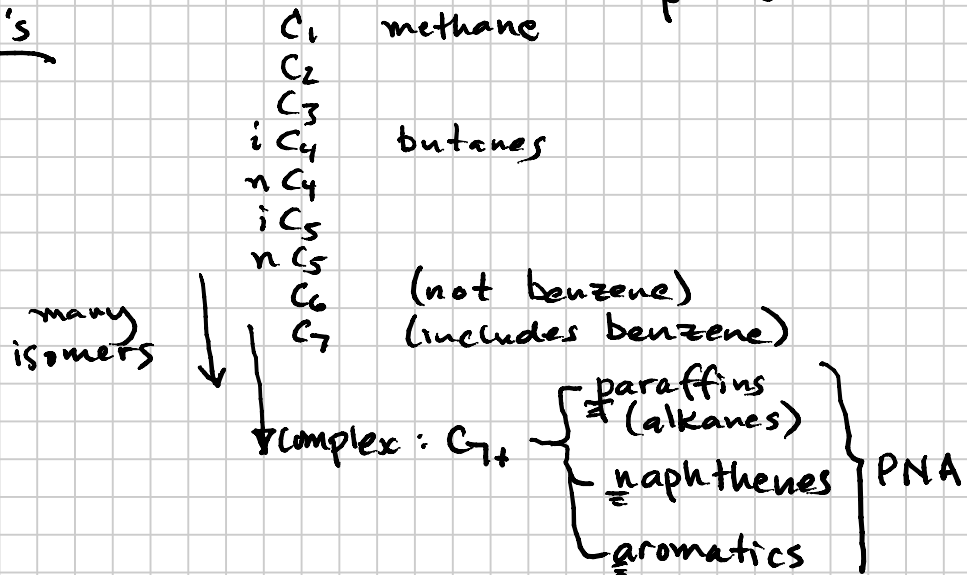 's
C₁ methane
C₂
C₃
i C₄ butanes
n C₄
i C₅
n C₅
C₆ (not benzene)
C₇ (includes benzene)
many
isomers
paraffins
(alkanes)
complex : C₇₊
naphthenes
PNA
aromatics